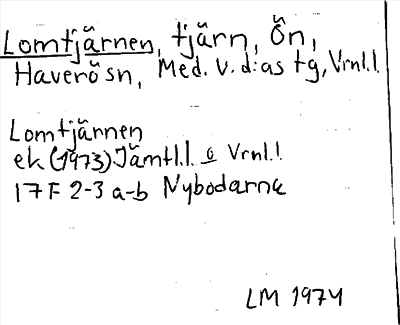 Lomtjärnen, tjärn, Ön,
Haverö sn, Med. v. d:as tg, Vrnl.l.
Lomtjärnen
ek (1973) Jämtl.l. o Vrnl.l.
17F 2-3 a-b Nybodarna
LM 1974